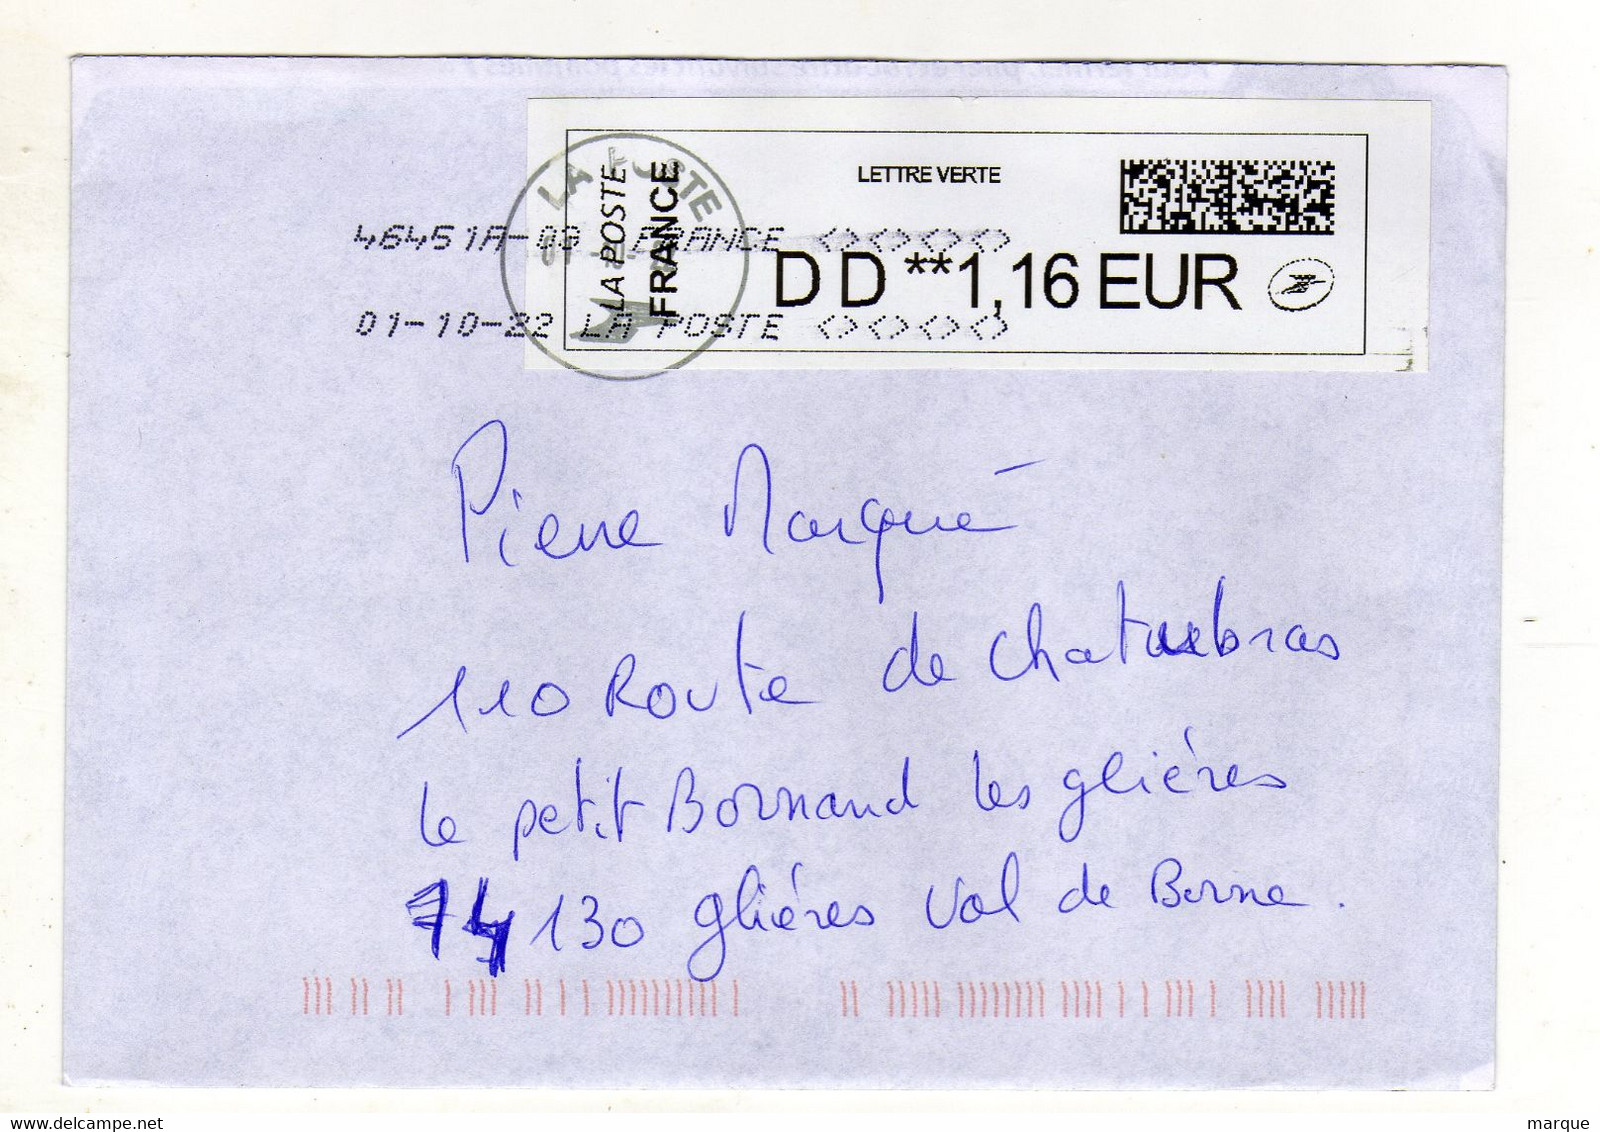 LETTRE VERTE
LA POSTE
FRANCE
DD **1,16 EUR
LA POSTE
46451A-03 FRANCE
01-10-22 LA POSTE
Pierre Marqué
110 Route de Chatuxbras
le petit Bornand les glières
74130 glières Val de Borne.
marque
www.delcampe.net